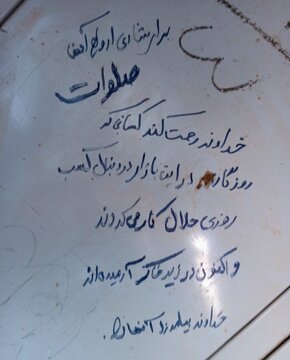 برای شادی ارواح آنها
صلوات
خداوند رحمت کند کسانی که
روزگاری در این بازار در دنبال کسب
روزی حلال کار می کردند
و اکنون در این خاک آرمیده اند
خداوند بیامرزد آنها را.